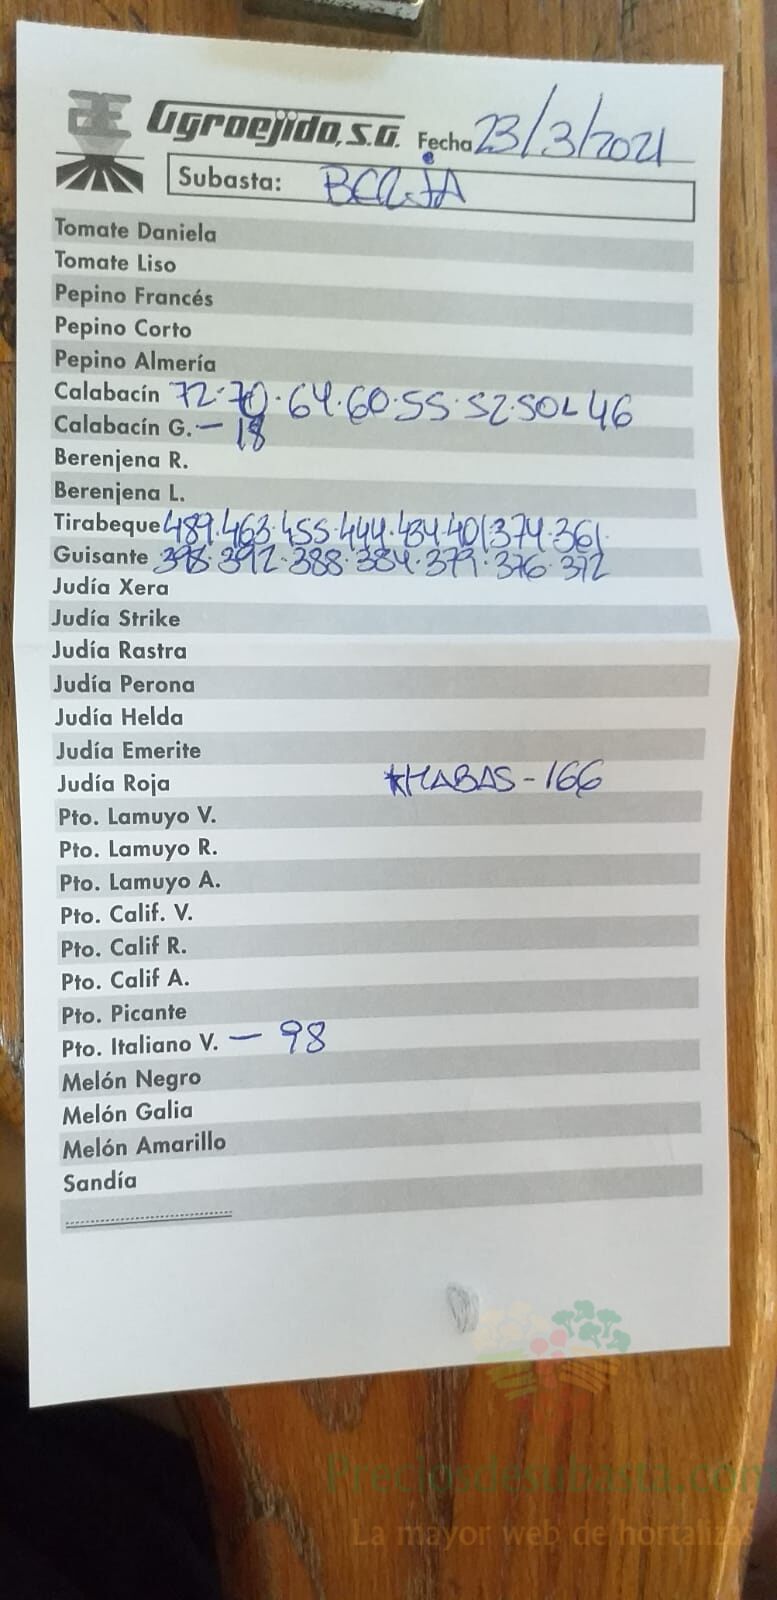 Agroejido, S.A. Fecha 23/3/2021
Subasta: BERJA
Tomate Daniela
Tomate Liso
Pepino Francés
Pepino Corto
Pepino Almería
Calabacín 72·70·64·60·55·52·50L46
Calabacín G. — 18
Berenjena R.
Berenjena L.
Tirabeque 489·463·455·444·434·401·374·361·
Guisante 398·392·388·384·379·376·372
Judía Xera
Judía Strike
Judía Rastra
Judía Perona
Judía Helda
Judía Emerite
Judía Roja *HABAS-166
Pto. Lamuyo V.
Pto. Lamuyo R.
Pto. Lamuyo A.
Pto. Calif. V.
Pto. Calif R.
Pto. Calif A.
Pto. Picante
Pto. Italiano V. — 98
Melón Negro
Melón Galia
Melón Amarillo
Sandía
Preciosdesubasta.com
La mayor web de hortalizas